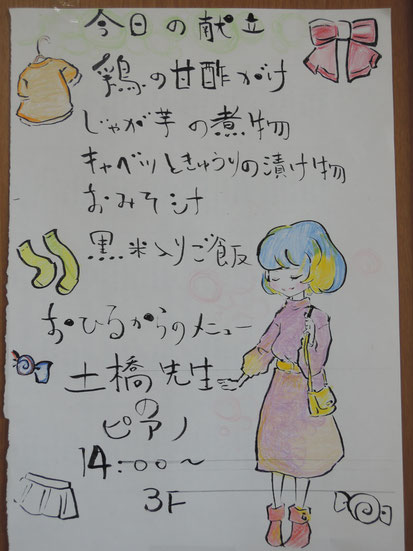 今日の献立
鶏の甘酢がけ
じゃが芋の煮物
キャベツときゅうりの漬け物
おみそ汁
黒米入りご飯
おひるからのメニュー
土橋先生
の
ピアノ
14:00〜
3F